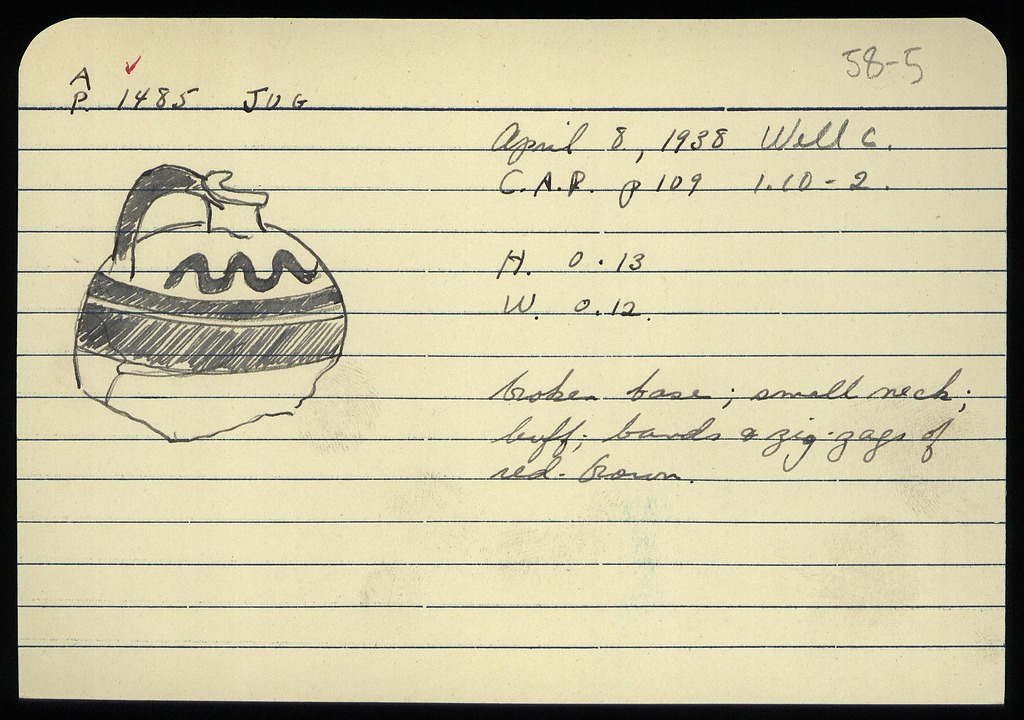 58-5
A
P. 1485 JUG
April 8, 1938 Well C.
C.A.R. p 109 1.10-2.
H. 0.13
W. 0.12.
broken base; small neck;
buff; bands & zig-zags of
red-brown.